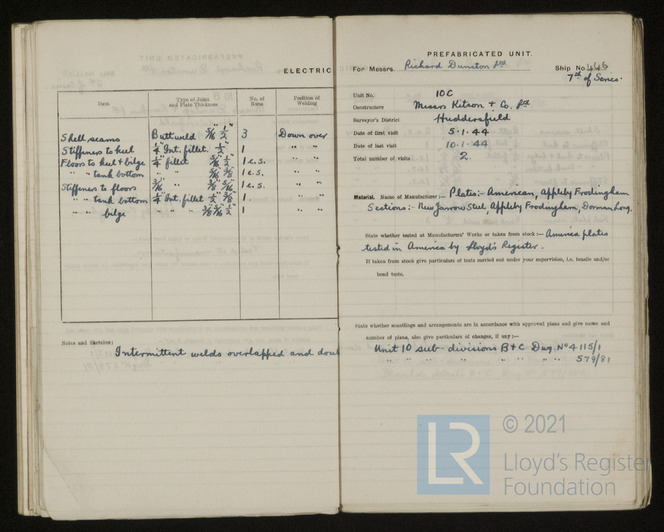 ELECTRIC
Item Type of Joint and Plate Thickness No. of Runs Position of Welding
Shell seams Butt weld 5/16" 1/2" 3 Down over
Stiffeners to keel 1/4" Int. fillet. 1/2" 1 " "
Floors to keel & bilge 1/4" fillet 5/16" 1/2" 1 e.s. " "
" " tank bottom " " 1 e.s. " "
Stiffeners to floors " 1 e.s. " "
" " tank bottom 1/4" Int. fillet 1 " "
" " bilge " " 1 " "
Notes and Sketches:
Intermittent welds overlapped and
PREFABRICATED UNIT.
For Messrs. Richard Dunston Ltd Ship No. 446
7th of Series.
Unit No. 10C
Constructors Messrs Kitson & Co. Ltd
Surveyor's District Huddersfield
Date of first visit 5.1.44
Date of last visit 10.1.44
Total number of visits 2.
Material. Name of Manufacturer:— Plates:- American, Appleby Frodingham
Sections:- New Jarrow Steel, Appleby Frodingham, Dorman Long.
State whether tested at Manufacturers' Works or taken from stock:— America plates
tested in America by Lloyd's Register.
If taken from stock give particulars of tests carried out under your supervision, i.e. tensile and/or
bend tests.
State whether scantlings and arrangements are in accordance with approval plans and give name and
number of plans, also give particulars of changes, if any:—
Unit 10 sub-divisions B & C Dwg. No 4115/1
" " " " " " " 579/81
LR
© 2021
Lloyd's Register
Foundation